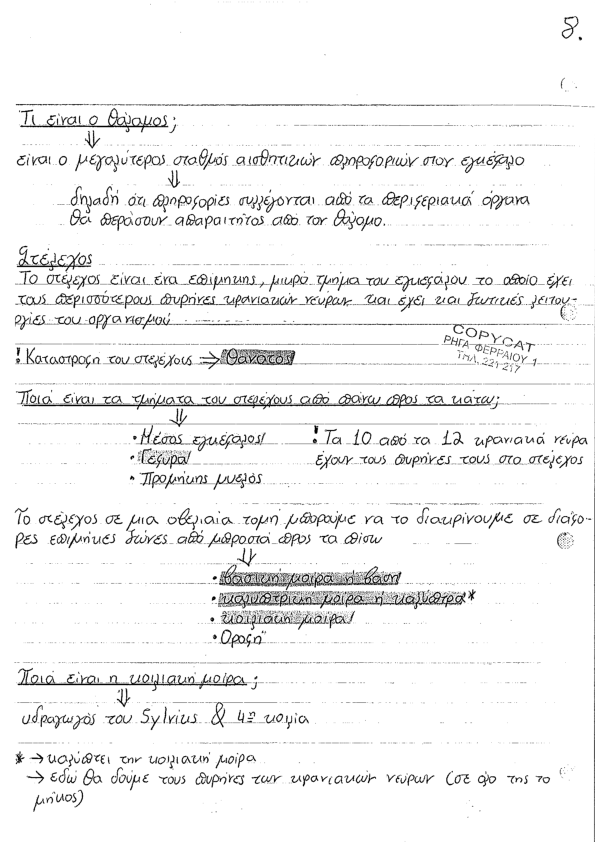 8.
Τι είναι ο θάλαμος;
είναι ο μεγαλύτερος σταθμός αισθητικών πληροφοριών στον εγκέφαλο
δηλαδή ότι πληροφορίες συλλέγονται από τα περιφεριακά όργανα
θα περάσουν απαραιτήτος από τον θάλαμο.
Στέλεχος
Το στέλεχος είναι ένα επιμηκης, μικρό τμήμα του εγκεφάλου το οποίο έχει
τους περισσότερους πυρήνες κρανιακών νεύρων και έχει και ζωτικές λειτου-
ργίες του οργανισμού
COPYCAT
ΡΗΓΑ ΦΕΡΡΑΙΟΥ 1
ΤΗΛ. 221-217
! Καταστροφή του στελέχους ⇒ θάνατος
Ποιά είναι τα τμήματα του στελέχους από πάνω προς τα κάτω;
• Μέσος εγκέφαλος/ ! Τα 10 από τα 12 κρανιακά νεύρα
• Γέφυρα/ έχουν τους πυρήνες τους στο στέλεχος
• Προμήκης μυελός
Το στέλεχος σε μια οβελιαία τομή μπορούμε να το διακρίνουμε σε διάφο-
ρες επιμήκες ζώνες από μπροστά προς τα πίσω
• βασική μοίρα ή βάση/
• καλυπτρική μοίρα ή καλύπτρα*
• κοιλιακή μοίρα/
• Οροφή
Ποιά είναι η κοιλιακή μοίρα;
υδραγωγός του Sylvius & 4η κοιλία
* → καλύπτει την κοιλιακή μοίρα
→ εδώ θα δούμε τους πυρήνες των κρανιακών νεύρων (σε όλο της το
μήκος)